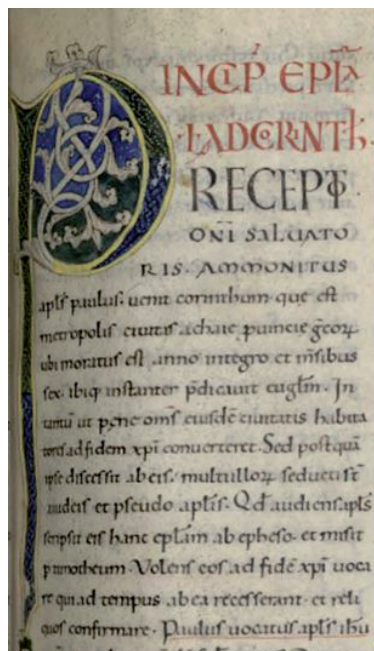 INCIP EPLA
I AD CORINTH.
PRECEPTI
ONI SALVATO
RIS. AMMONITUS
apls paulus. uenit corinthum que est
metropolis ciuitas achaie puincie grecorum
ubi moratus est anno integro et msibus
sex. ibiq instanter pdicauit euglm. In
tantu ut pene oms eiusde ciuitatis habita
tores ad fidem xpi conuerteret. Sed postqua
ipse discessit ab eis. multi illorum seducti st
a iudeis et pseudo aplis. Qd audiens apls
scripsit eis hanc eplam ab epheso. et misit
p timotheum. Volens eos ad fide xpi uoca
re qui ad tempus ab ea recesserant. et reli
quos confirmare. Paulus uocatus apls ihu